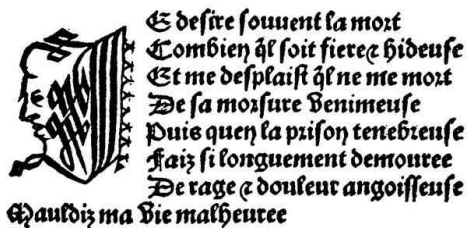 E desire souuent la mort
Combien q̃l soit fiere ⁊ hideuse
Et me desplaist q̃l ne me mort
De sa morsure Venimeuse
Puis quen la prison tenebreuse
Faiz si longuement demouree
De rage ⁊ douleur angoisseuse
Mauldiz ma Vie malheuree